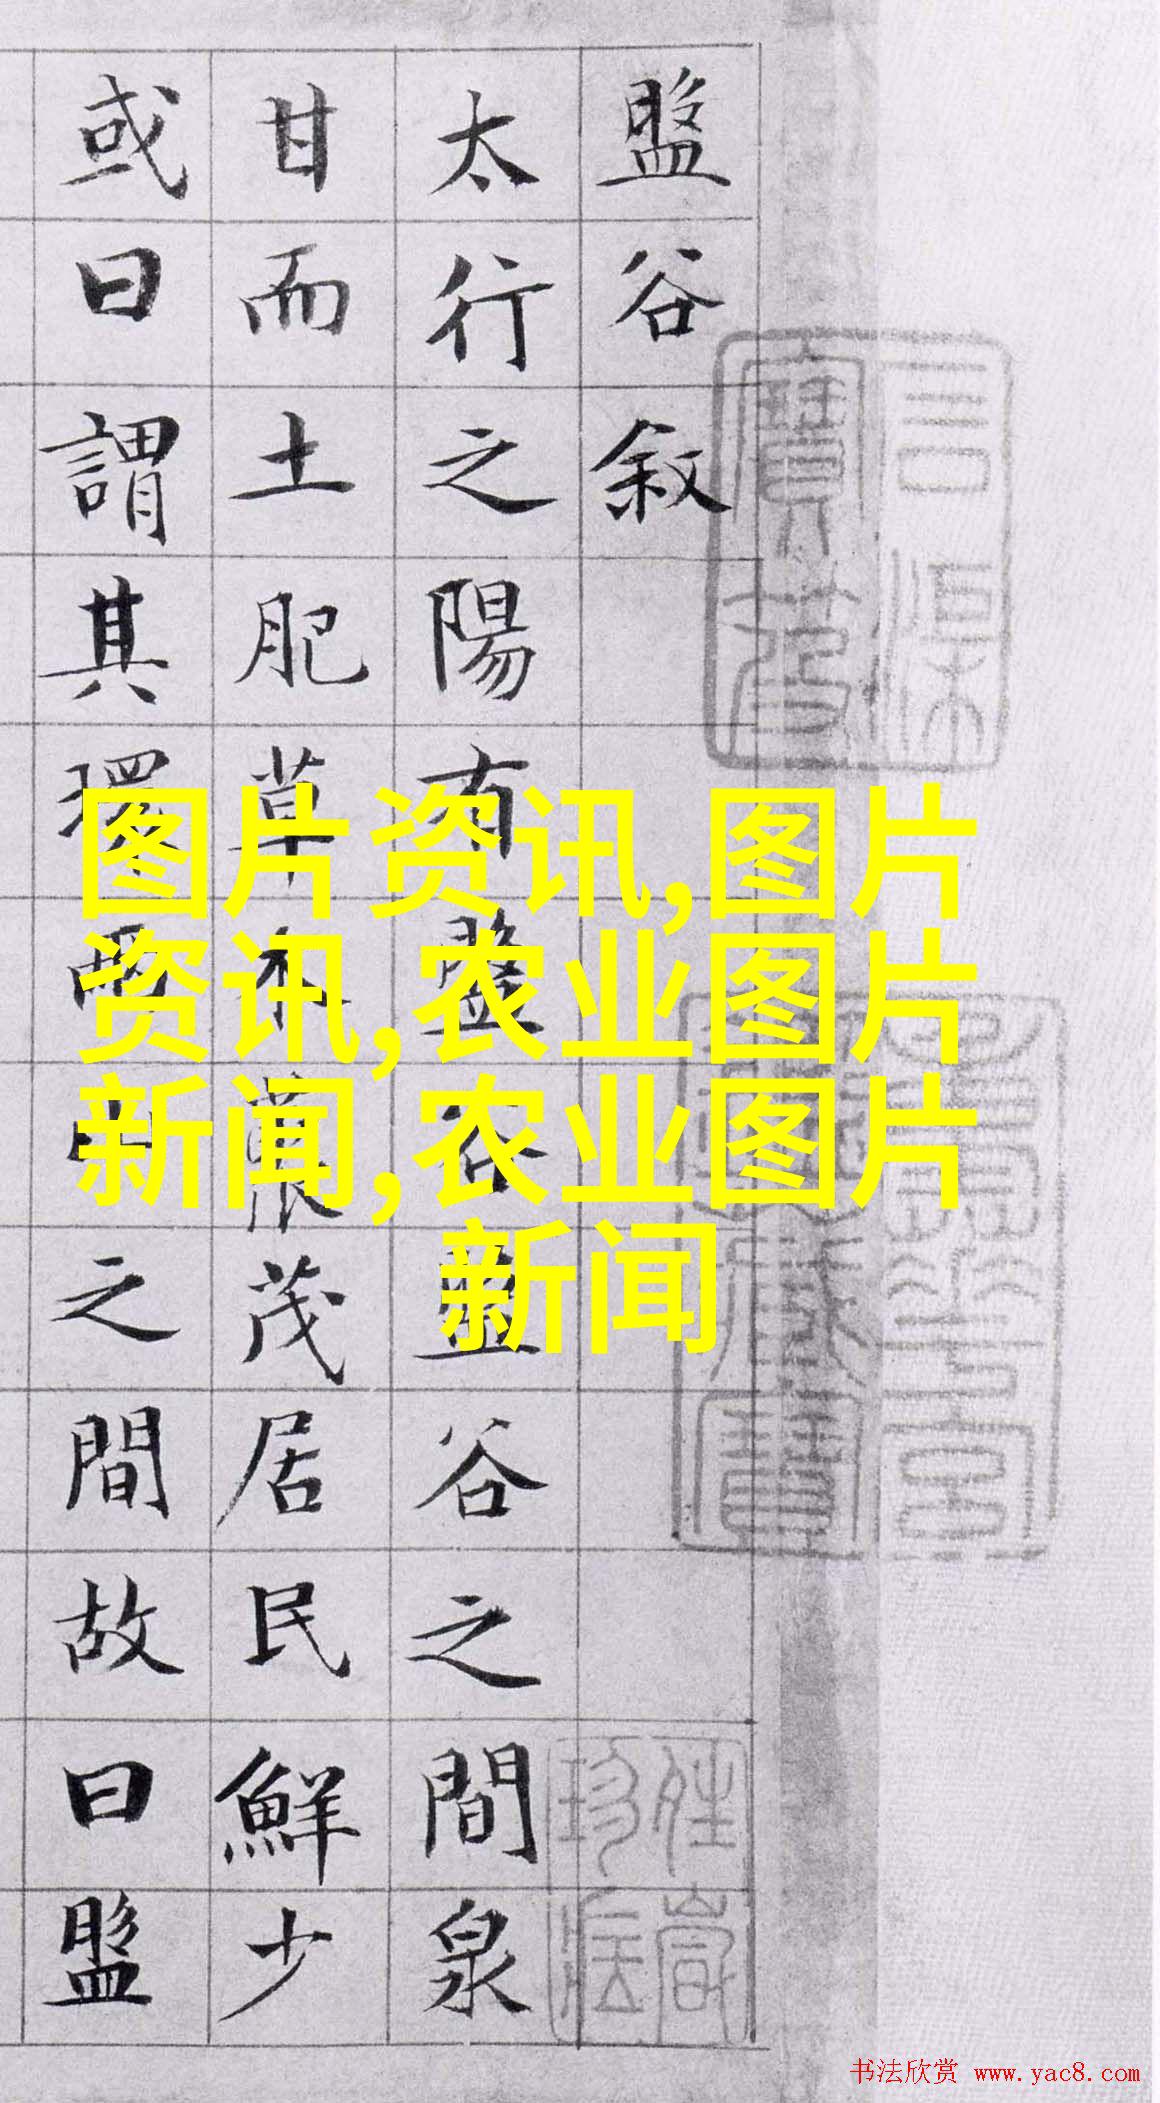 盤谷敘
太行之陽有盤谷盤谷之間泉
甘而土肥草木藂茂居民鮮少
或曰謂其環兩山之間故曰盤
图片资讯,图片
资讯,农业图片
新闻,农业图片
新闻
书法欣赏 www.yac8.com